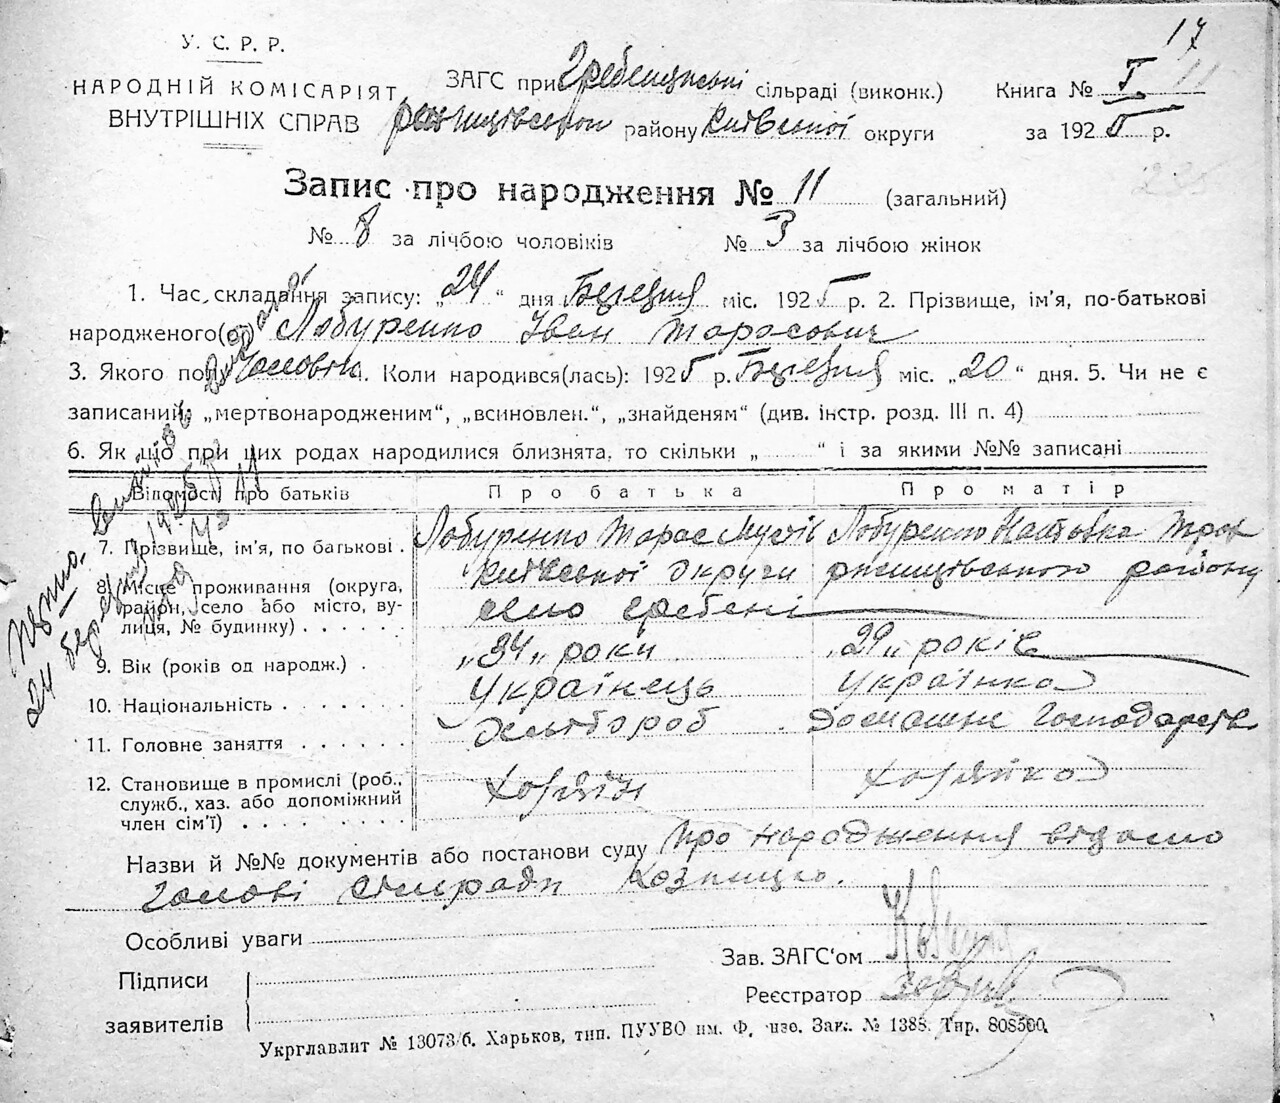 17
У. С. Р. Р.
НАРОДНІЙ КОМІСАРІЯТ
ВНУТРІШНІХ СПРАВ
ЗАГС при Гребенцівські сільраді (виконк.) Книга № I 11
району Київської округи за 1925 р.
Запис про народження № 11 (загальний)
№ 8 за лічбою чоловіків № 3 за лічбою жінок
1. Час складання запису: „24“ дня Березня міс. 1925 р. 2. Прізвище, ім'я, по-батькові
народженого(ої) Лобуренко Іван Тарасович
3. Якого пол Чоловік 4. Коли народився(лась): 1925 р. Березня міс. „20“ дня. 5. Чи не є
записаний: „мертвонародженим“, „всиновлен.“, „знайденям“ (див. інстр. розд. III п. 4)
6. Як що при цих родах народилися близнята, то скільки „ “ і за якими №№ записані
Відомості про батьків Про батька Про матір
7. Прізвище, ім'я, по батькові. Лобуренко Тарас Лобуренко
8. Місце проживання (округа, район, село або місто, вулиця, № будинку) Київської округи району
село Гребені
9. Вік (років од народж.) „34„ роки „29„ років
10. Національність Українець Українка
11. Головне заняття Хлібороб Домашнє Господарств
12. Становище в промислі (роб., служб., хаз. або допоміжний член сім'ї) Хозяїн Хозяйка
Назви й №№ документів або постанови суду Про народження відомо
Голові Сільради
Особливі уваги
Підписи
заявителів
Зав. ЗАГС‘ом
Реєстратор
Укрглавлит № 13073/б. Харьков, тип. ПУУВО им. Ф. Зак. № 1385. Тир. 808500.
24 березня 1925 р.
№ 11